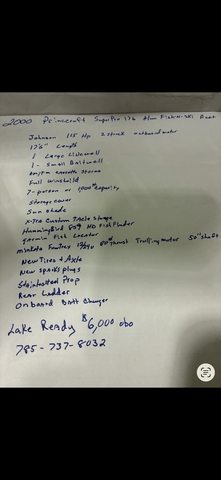 2000 Princecraft SuperPro 176 Fish-N-Ski Boat
Johnson 115 Hp 2 stroke outboard motor
17'6" Length
1 Large Livewell
1 - Small Baitwell
am/fm cassette stereo
Full windshield
7-person or 1000# capacity
Storage cover
Sun shade
X-Tra Custom Tackle Storage
HummingBird 809 HD Fishfinder
garmin Fish Locator
minkota Fortrex 80# thrust Trolling motor 50" shaft
New Tires & Axle
New sparks plugs
Stainlesteel Prop
Rear Ladder
On board Batt Charger
Lake Ready $6,000 obo
785-737-8032